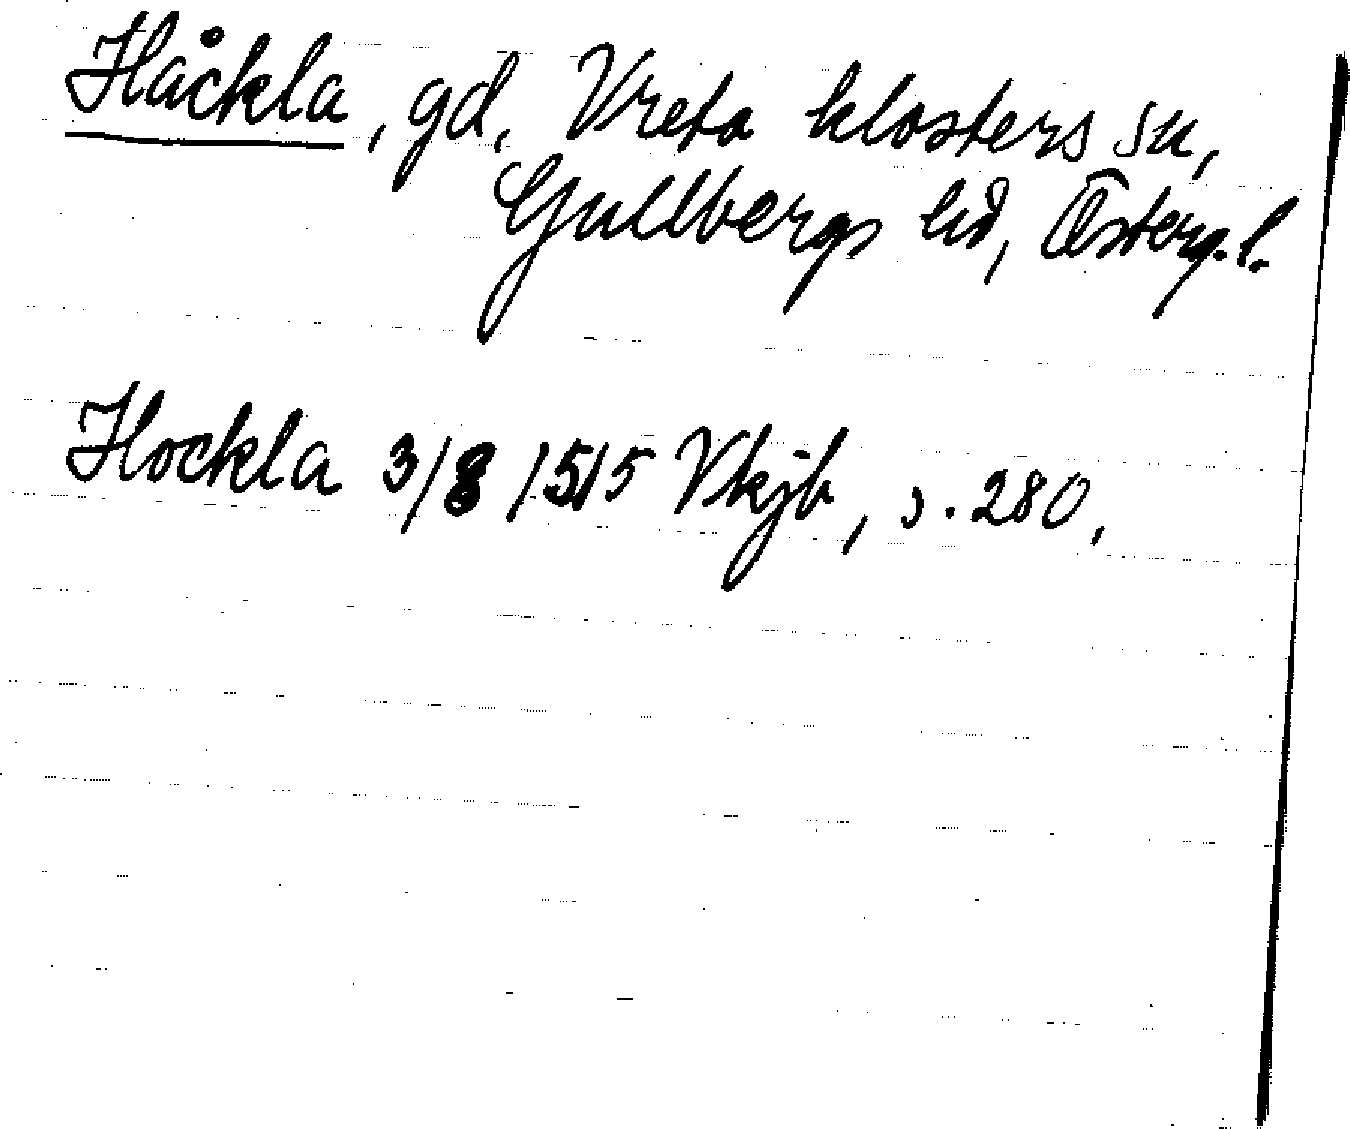 Håckla, gd, Vreta klosters sn,
Gullbergs hd, Österg.l.
Hockla 3/8 1515 Vkjb, s. 280,